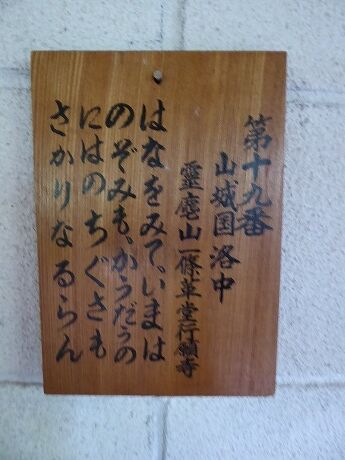 第十九番
山城国洛中
霊麀山一條革堂行願寺
はなをみて、いまは
のぞみも、かうだうの
にはのちぐさも
さかりなるらん